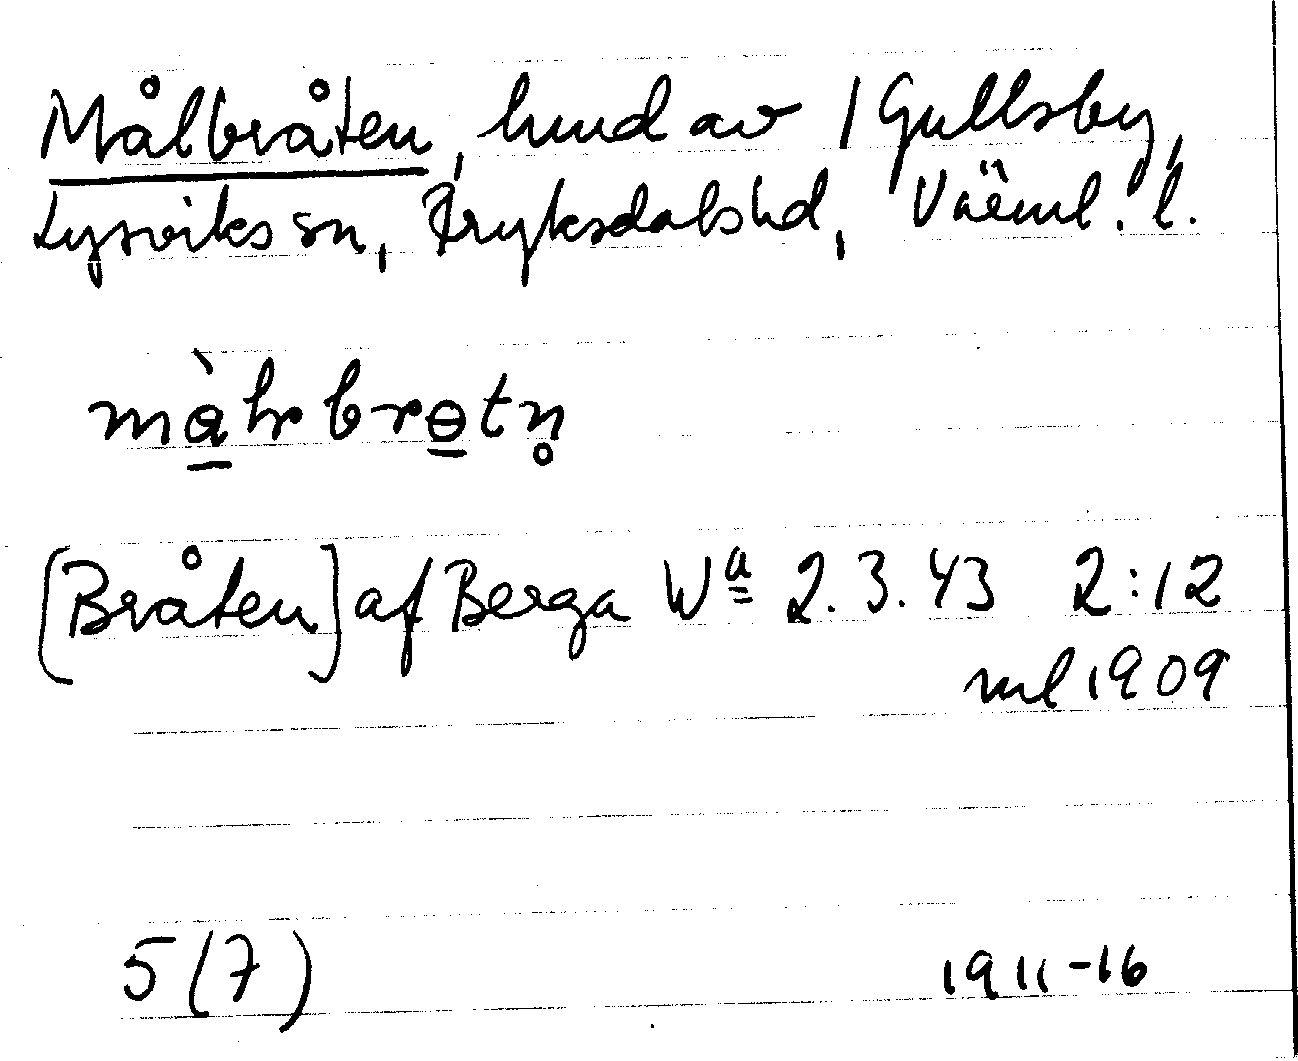 Målbråten, hmd av 1 Gullsby,
Lysviks sn, Fryksdals hd, Värml. l.
màhrbrɵtn̥
[Bråten] af Berga Wa 2.3.43 2:12
ml 1909
5(7) 1911-16